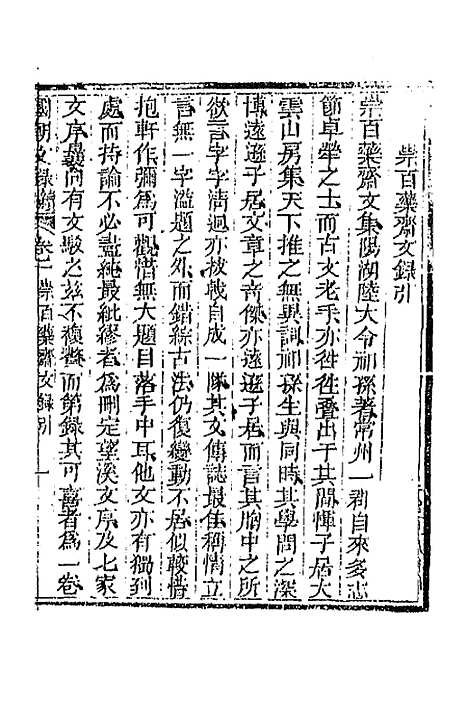 崇百藥齋文錄引
崇百藥齋文集陽湖陸大令祁孫著常州一郡自來多志
節卓犖之士而古文老手亦往往疊出于其間惲子居大
雲山房集天下推之無異詞祁孫生與同時其學問之深
博遠遜子居文章之奇傑亦遠遜子居而言其腦中之所
欲言字字清迥亦拔戟自成一隊其文傳誌最佳稱情立
言無一字溢題之外而錯綜古法仍復變動不居似較惜
抱軒作彌為可觀惜無大題目落手中耳他文亦有獨到
處而持論不必盡純最紕繆者為刪定望溪文序及七家
文序曩向有文駁之茲不復辭而第錄其可喜者為一卷
國朝文錄續編 卷一 崇百藥齋文錄引 一